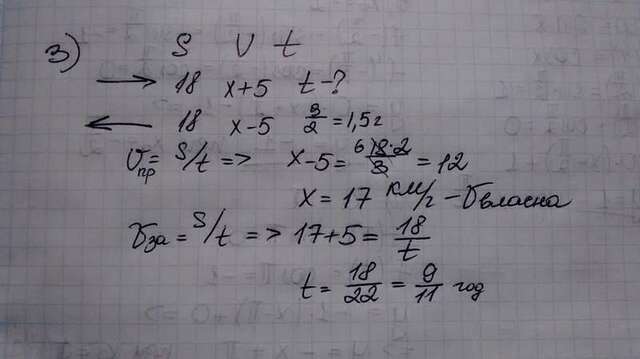 3) S V t
→ 18 x+5 t-?
← 18 x-5 3/2=1,5г
Vпр= S/t => x-5= 6) 18·2/3 = 12
x = 17 км/г - Vвласна
Vза = S/t => 17+5= 18/t
t= 18/22 = 9/11 год